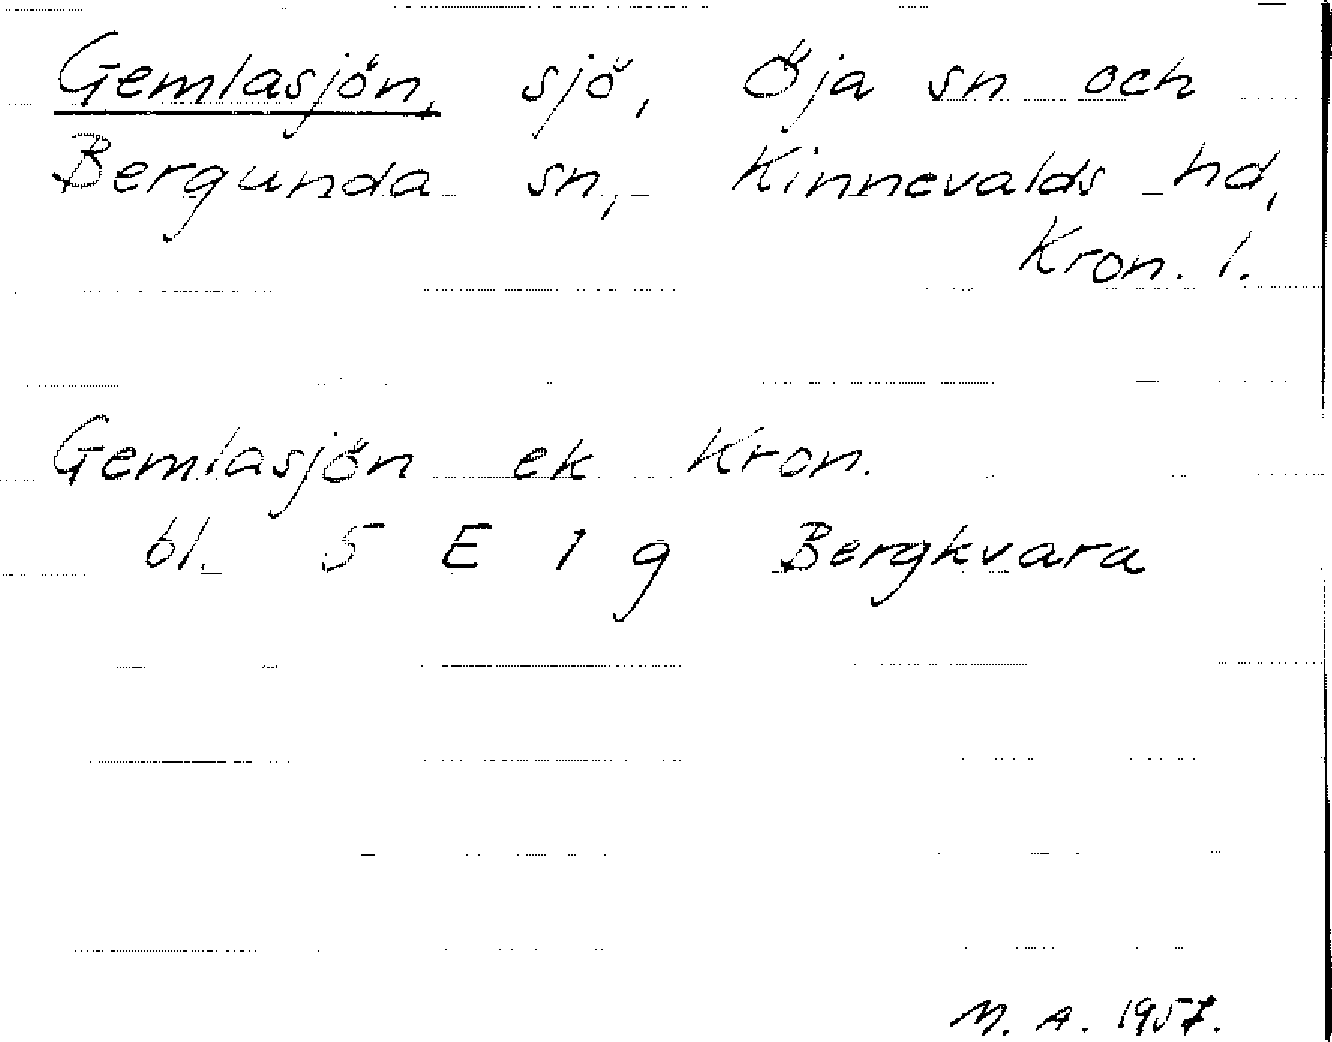 Gemlasjön, sjö, Öja sn och
Bergunda sn, Kinnevalds hd,
Kron. l.
Gemlasjön ek Kron.
bl. 5 E 1 g Bergkvara
M. A. 1957.